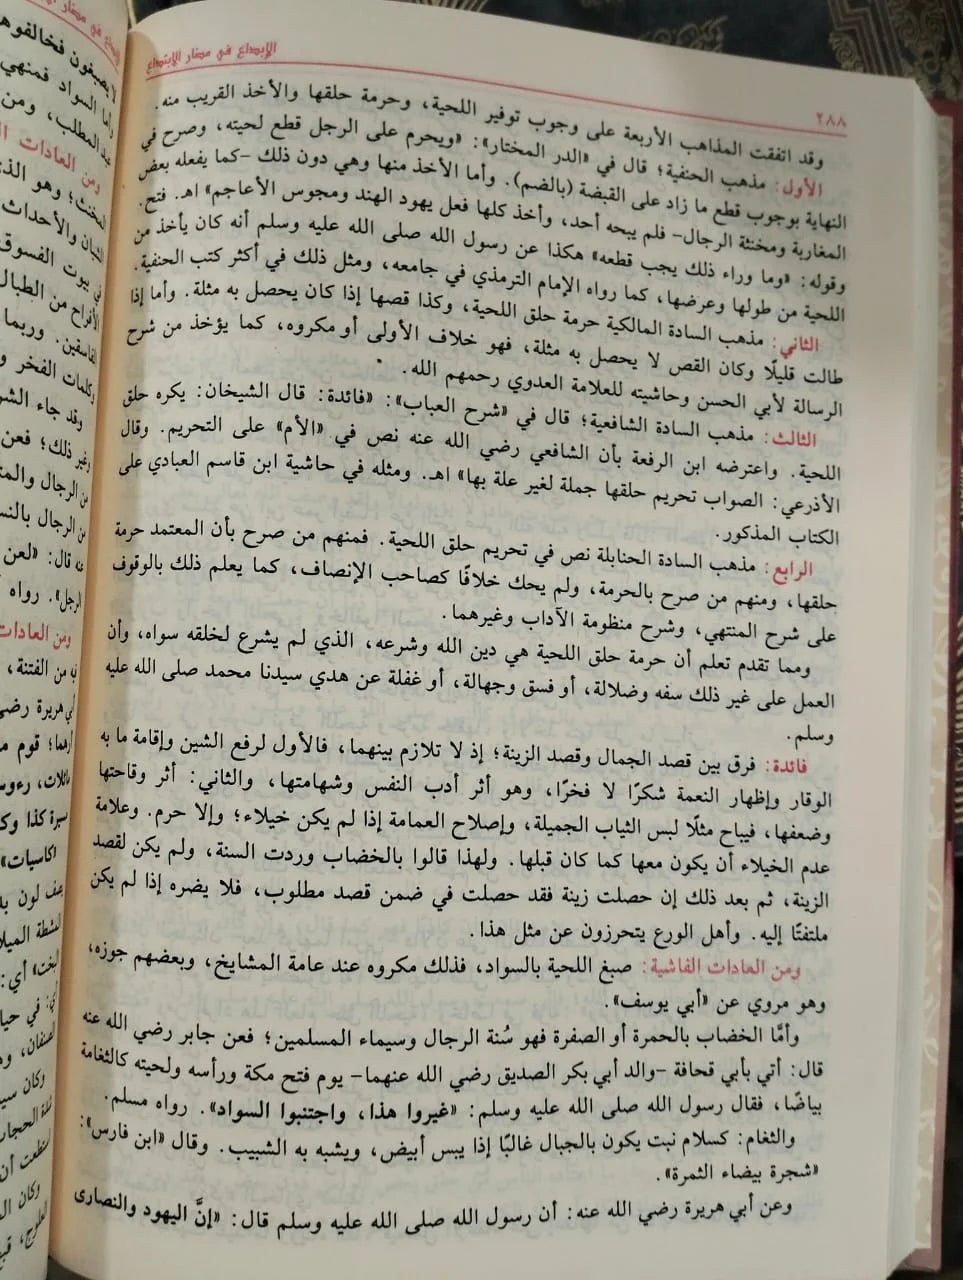 الإبداع في مضار الابتداع
٢٨٨
وقد اتفقت المذاهب الأربعة على وجوب توفير اللحية، وحرمة حلقها والأخذ القريب منه.
الأول: مذهب الحنفية؛ قال في «الدر المختار»: «ويحرم على الرجل قطع لحيته، وصرح في
النهاية بوجوب قطع ما زاد على القبضة (بالضم). وأما الأخذ منها وهي دون ذلك -كما يفعله بعض
المغاربة ومخنثة الرجال- فلم يبحه أحد، وأخذ كلها فعل يهود الهند ومجوس الأعاجم» اهـ. فتح.
وقوله: «وما وراء ذلك يجب قطعه» هكذا عن رسول الله صلى الله عليه وسلم أنه كان يأخذ من
اللحية من طولها وعرضها، كما رواه الإمام الترمذي في جامعه، ومثل ذلك في أكثر كتب الحنفية.
الثاني: مذهب السادة المالكية حرمة حلق اللحية، وكذا قصها إذا كان يحصل به مثلة. وأما إذا
طالت قليلًا وكان القص لا يحصل به مثلة، فهو خلاف الأولى أو مكروه، كما يؤخذ من شرح
الرسالة لأبي الحسن وحاشيته للعلامة العدوي رحمهم الله.
الثالث: مذهب السادة الشافعية؛ قال في «شرح العباب»: «فائدة: قال الشيخان: يكره حلق
اللحية. واعترضه ابن الرفعة بأن الشافعي رضي الله عنه نص في «الأم» على التحريم. وقال
الأذرعي: الصواب تحريم حلقها جملة لغير علة بها» اهـ. ومثله في حاشية ابن قاسم العبادي على
الكتاب المذكور.
الرابع: مذهب السادة الحنابلة نص في تحريم حلق اللحية. فمنهم من صرح بأن المعتمد حرمة
حلقها، ومنهم من صرح بالحرمة، ولم يحك خلافًا كصاحب الإنصاف، كما يعلم ذلك بالوقوف
على شرح المنتهي، وشرح منظومة الآداب وغيرهما.
ومما تقدم تعلم أن حرمة حلق اللحية هي دين الله وشرعه، الذي لم يشرع لخلقه سواه، وأن
العمل على غير ذلك سفه وضلالة، أو فسق وجهالة، أو غفلة عن هدي سيدنا محمد صلى الله عليه
وسلم.
فائدة: فرق بين قصد الجمال وقصد الزينة؛ إذ لا تلازم بينهما، فالأول لرفع الشين وإقامة ما به
الوقار وإظهار النعمة شكرًا لا فخرًا، وهو أثر أدب النفس وشهامتها، والثاني: أثر وقاحتها
وضعفها، فيباح مثلًا لبس الثياب الجميلة، وإصلاح العمامة إذا لم يكن خيلاء؛ وإلا حرم. وعلامة
عدم الخيلاء أن يكون معها كما كان قبلها. ولهذا قالوا بالخضاب وردت السنة، ولم يكن لقصد
الزينة، ثم بعد ذلك إن حصلت زينة فقد حصلت في ضمن قصد مطلوب، فلا يضره إذا لم يكن
ملتفتًا إليه. وأهل الورع يتحرزون عن مثل هذا.
ومن العادات الفاشية: صبغ اللحية بالسواد، فذلك مكروه عند عامة المشايخ، وبعضهم جوزه،
وهو مروي عن «أبي يوسف».
وأمَّا الخضاب بالحمرة أو الصفرة فهو سُنة الرجال وسيماء المسلمين؛ فعن جابر رضي الله عنه
قال: أتي بأبي قحافة -والد أبي بكر الصديق رضي الله عنهما- يوم فتح مكة ورأسه ولحيته كالثغامة
بياضًا، فقال رسول الله صلى الله عليه وسلم: «غيروا هذا، واجتنبوا السواد». رواه مسلم.
والثغام: كسلام نبت يكون بالجبال غالبًا إذا يبس أبيض، ويشبه به الشيب. وقال «ابن فارس»:
«شجرة بيضاء الثمرة».
وعن أبي هريرة رضي الله عنه: أن رسول الله صلى الله عليه وسلم قال: «إنَّ اليهود والنصارى
لا يصبغون فخالفوهم
وأما السواد فمنهي
عبد المطلب، ومن
ومن العادات
المخنث؛ وهو
الشبان والأحداث
في بيوت الفسوق
الأفراح من الطبال
الفاسقين. وربما
وكلمات الفخر
وقد جاء
وغير ذلك؛ فعن
من الرجال
من الرجال
قال: «لعن
الرجل». رواه
ومن العادات
من الفتنة،
أبي هريرة
قوم
مائلات،
كذا
لون
الميلاء
أي:
في
وكان
وكان